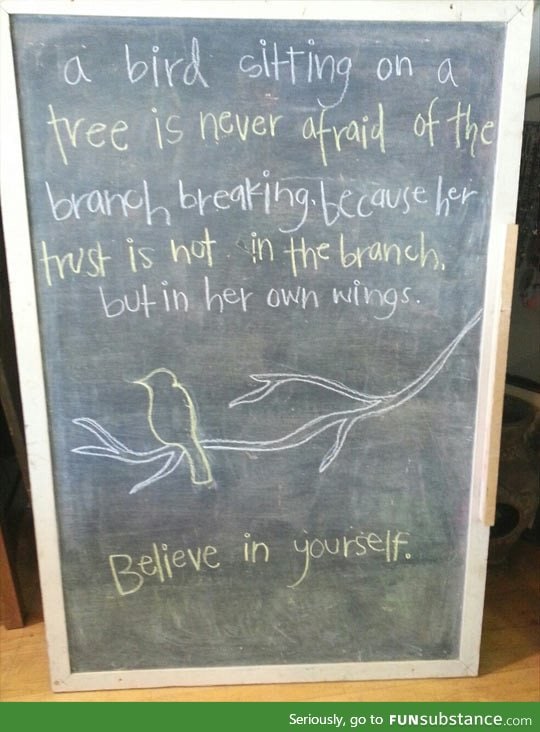 a bird sitting on a
tree is never afraid of the
branch breaking, because her
trust is not in the branch,
but in her own wings.
Believe in yourself.
Seriously, go to FUNsubstance.com